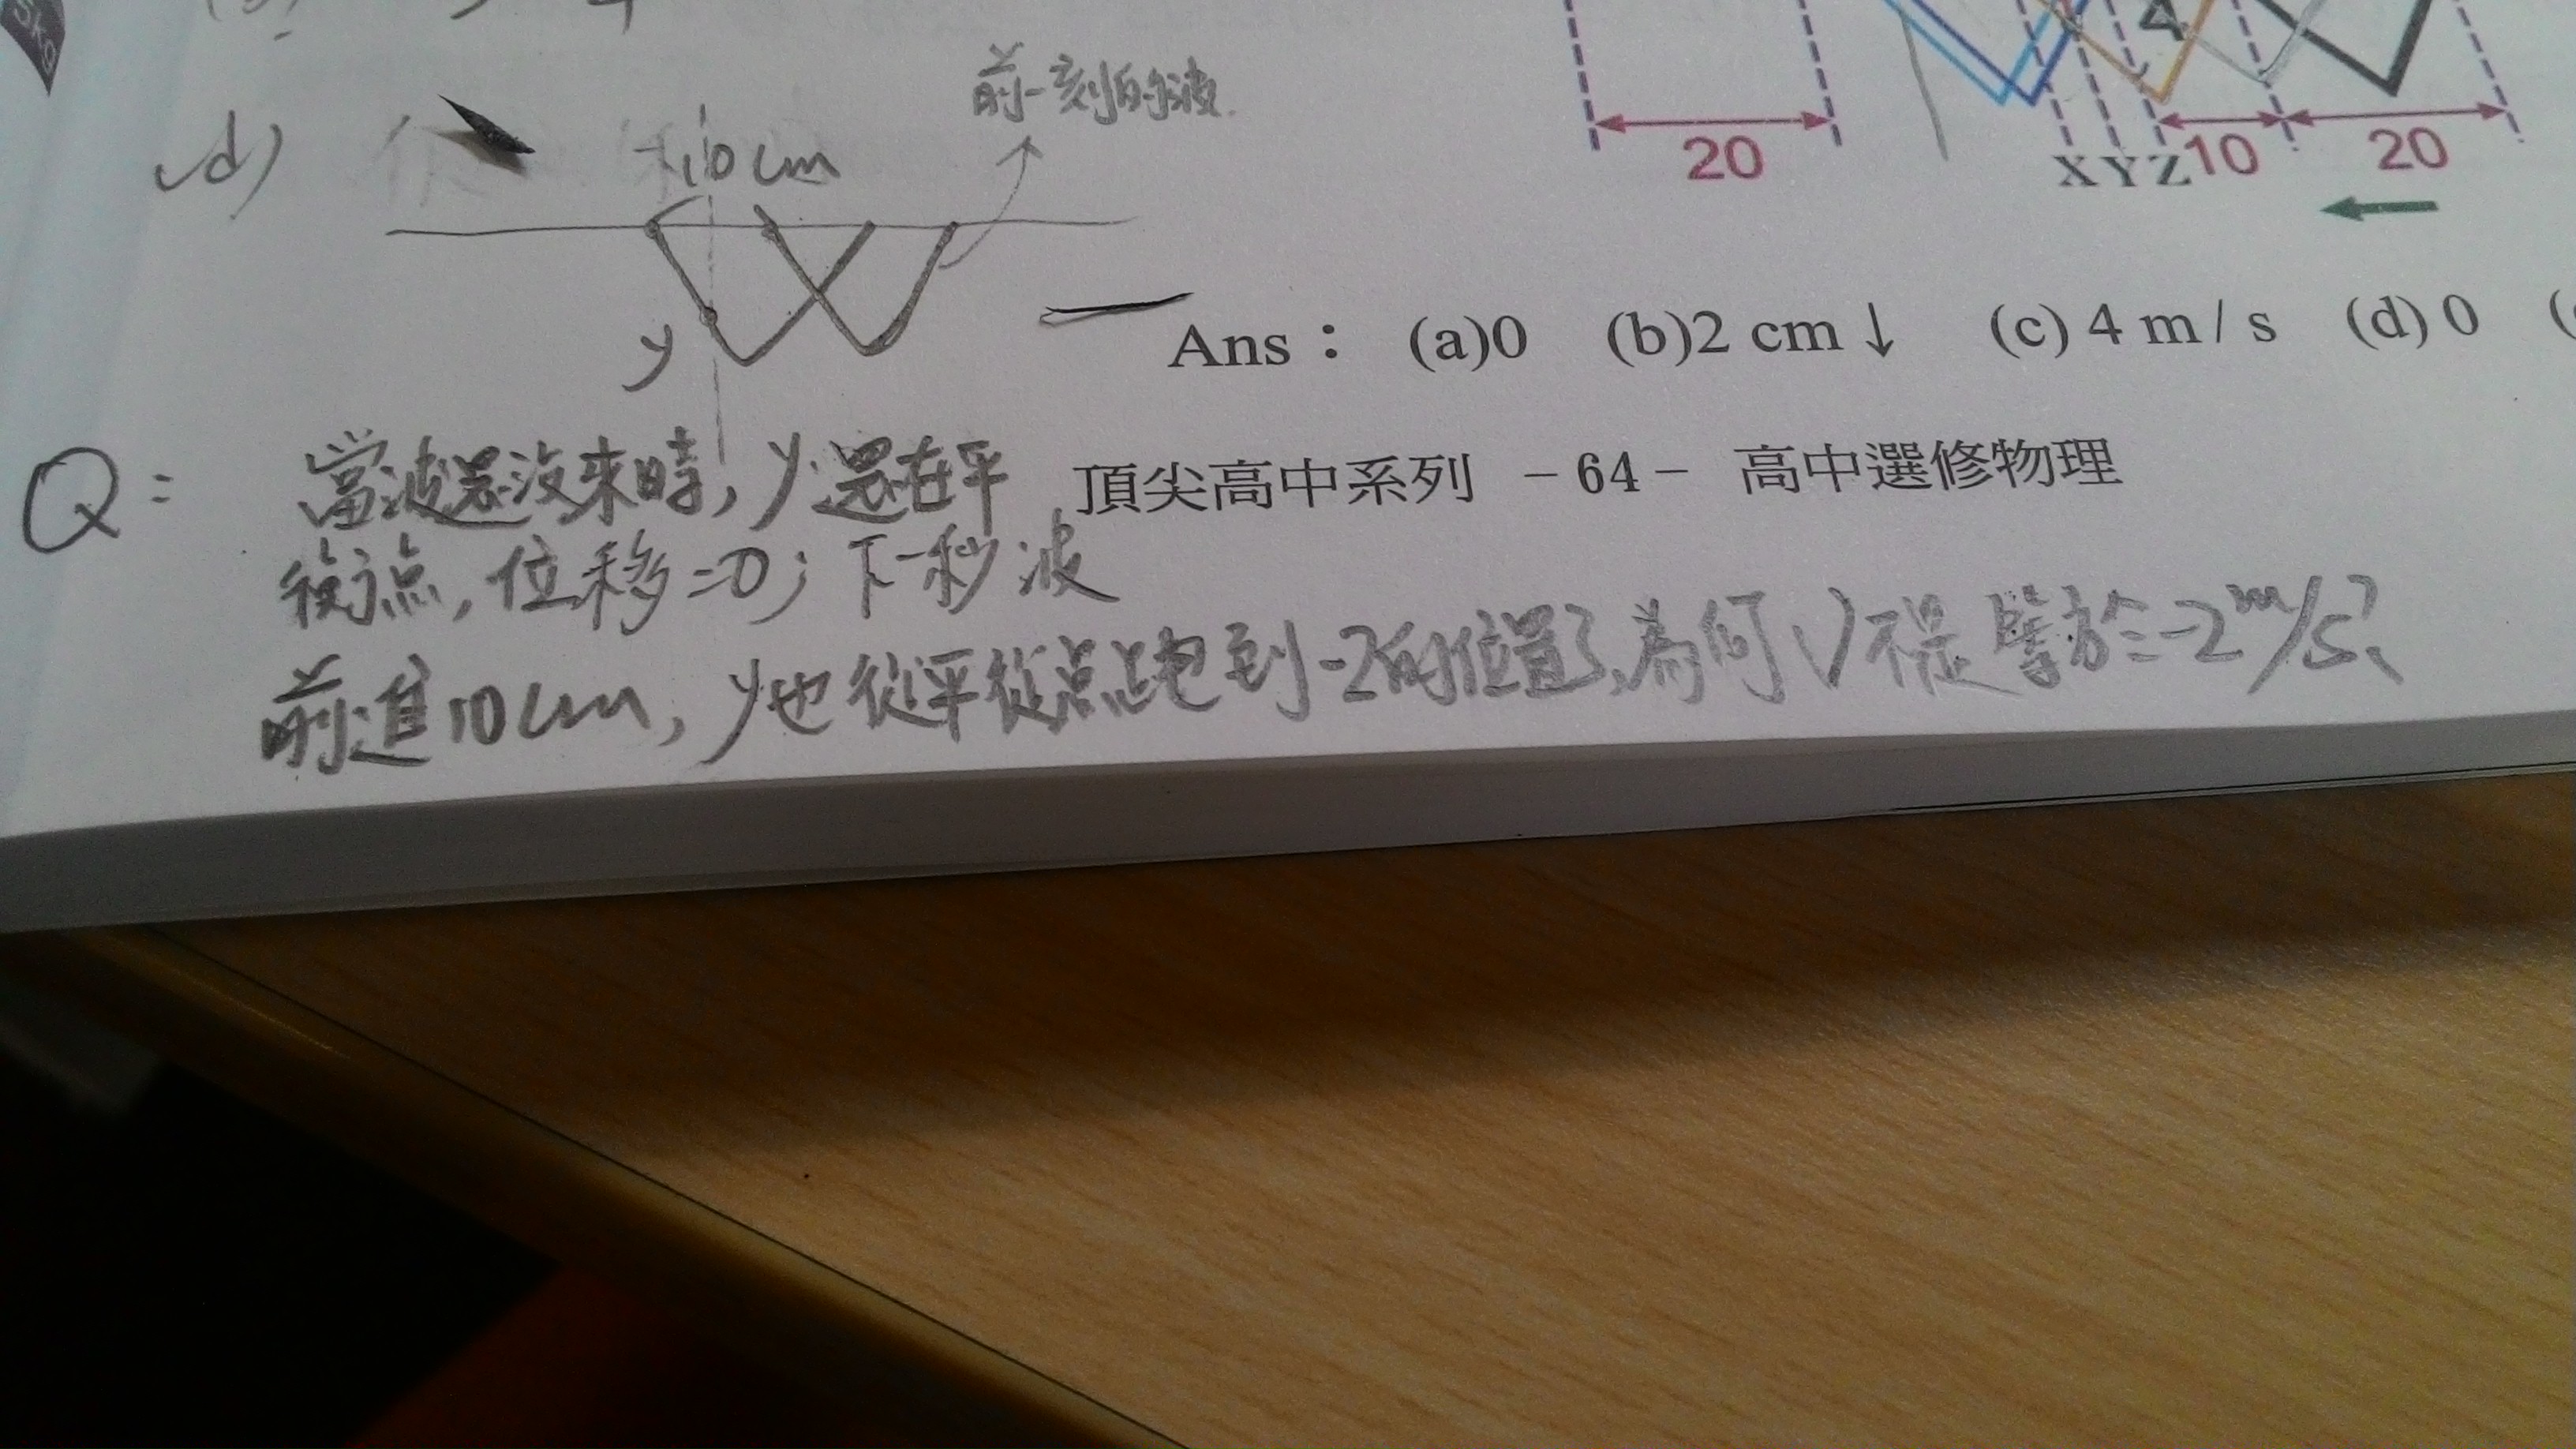 前一刻的波.
(d)
10 cm
4
20
X Y Z 10
20
y
Ans： (a)0 (b)2 cm↓ (c) 4 m/s (d) 0 (
Q：
當波還沒來時, y還在平
衡点, 位移=0; 下一秒波
前進10cm, y也從平衡点跑到-2的位置了,為何V不是等於=-2m/s?
頂尖高中系列 －64－ 高中選修物理